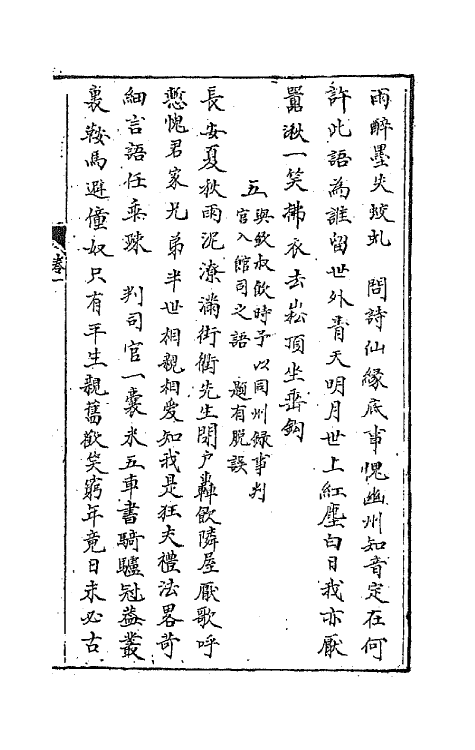 雨醉墨失蛟虬　問詩仙緣底事愧幽州知音定在何
許此語為誰留世外青天明月世上紅塵白日我亦厭
囂湫一笑拂衣去嵩頂坐垂鈎
五
與欽叔飲時予以同州錄事判
官入館司之語　題有脫誤
長安夏秋雨泥潦滿街衢先生閉户轟飲隣屋厭歌呼
慙愧君家兄弟半世相親相愛知我是狂夫禮法畧苛
細言語任乖疎　判司官一囊米五車書騎驢冠葢叢
裏鞍馬避僮奴只有平生親舊歡笑窮年竟日未必古
卷一